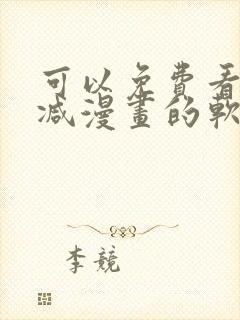 可以免費看
减漫畫的軟
李競